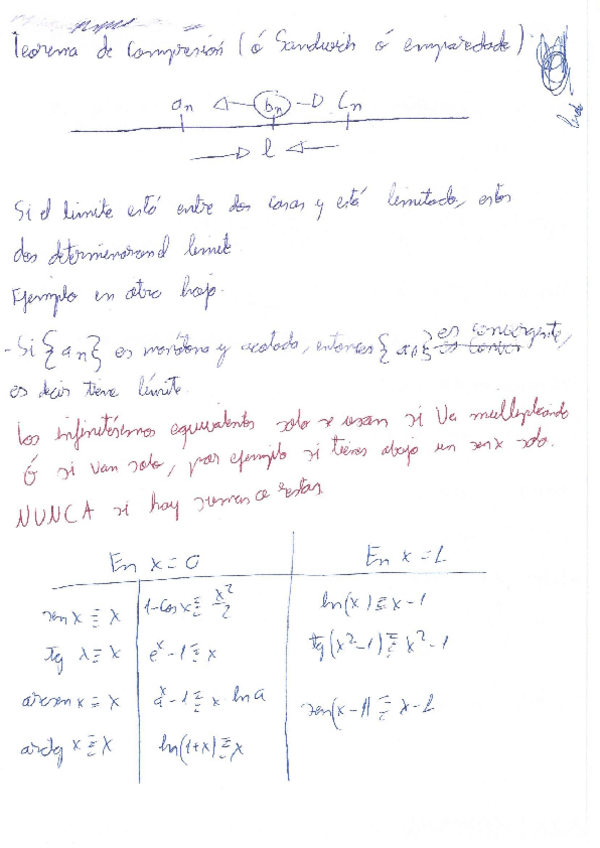 Teorema de Compresión (ó Sandwich ó emparedado).
an bn Cn
l
Si el limite está entre dos cosas y está limitado, estos
dos determinarand limite
Ejemplo en otra hoja.
- Si {an} es monótona y acotada, entonces {an} es convergente,
es decir tiene límite.
Los infinitésimos equivalentes solo se usan si va multiplicando
ó si van solo, por ejemplo si tienes abajo un senx solo.
NUNCA si hay sumas o restas
En x = 0 En x = 1
sen x ≡ x 1-cos x ≡ x²/2 ln(x) ≡ x-1
tg x ≡ x e^x - 1 ≡ x tg(x²-1) ≡ x²-1
arcsen x = x a^x - 1 ≡ x ln a sen(x-1) ≡ x-1
arctg x ≡ x ln(1+x) ≡ x